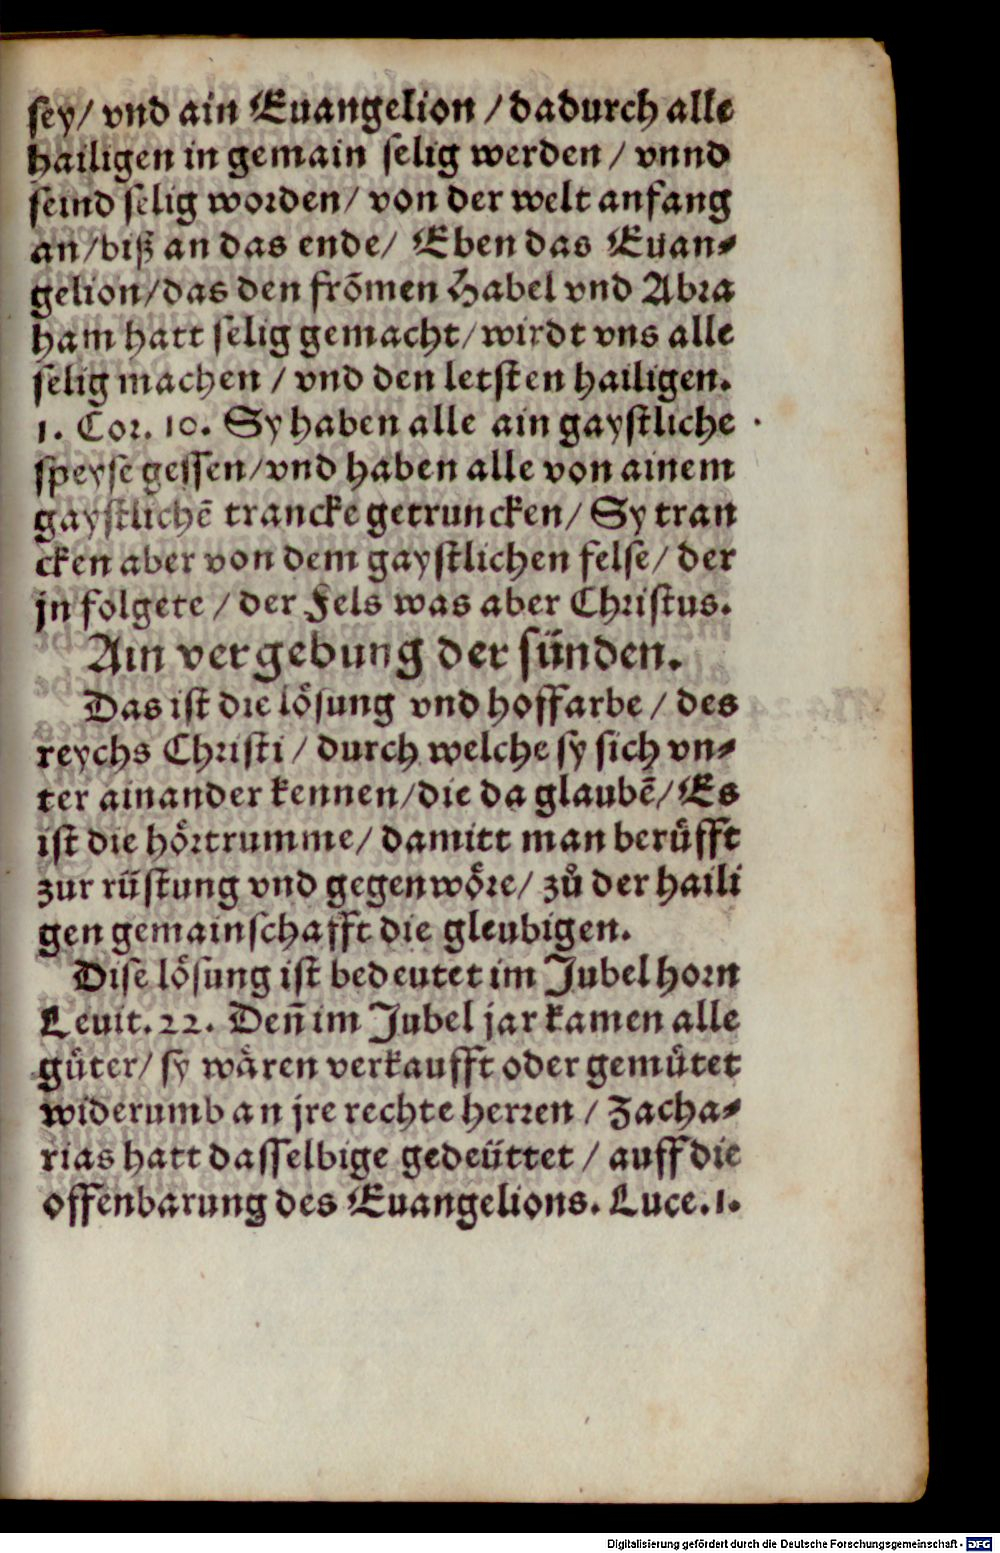 sey/ vnd ain Euangelion /dadurch alle
hailigen in gemain selig werden / vnnd
seind selig worden/ von der welt anfang
an/biß an das ende/ Eben das Euan-
gelion/das den frõmen Habel vnd Abra
ham hatt selig gemacht/wirdt vns alle
selig machen / vnd den letsten hailigen.
1. Cor. 10. Sy haben alle ain gaystliche
speyse gessen/vnd haben alle von ainem
gaystlichẽ trancke getruncken/ Sy tran
cken aber von dem gaystlichen felse/ der
jn folgete / der Fels was aber Christus.
Ain vergebung der sünden.
Das ist die lösung vnd hoffarbe / des
reychs Christi / durch welche sy sich vn-
ter ainander kennen/die da glaubẽ/ Es
ist die hörtrumme/ damitt man berüfft
zur rüstung vnd gegenwöre/ zů der haili
gen gemainschafft die gleubigen.
Dise lösung ist bedeutet im Jubel horn
Leuit. 22. Deñ im Jubel jar kamen alle
güter/ sy wären verkaufft oder gemütet
widerumb an jre rechte herren / Zacha-
rias hatt dasselbige gedeüttet / auff die
offenbarung des Euangelions. Luce. 1.
Digitalisierung gefördert durch die Deutsche Forschungsgemeinschaft - DFG